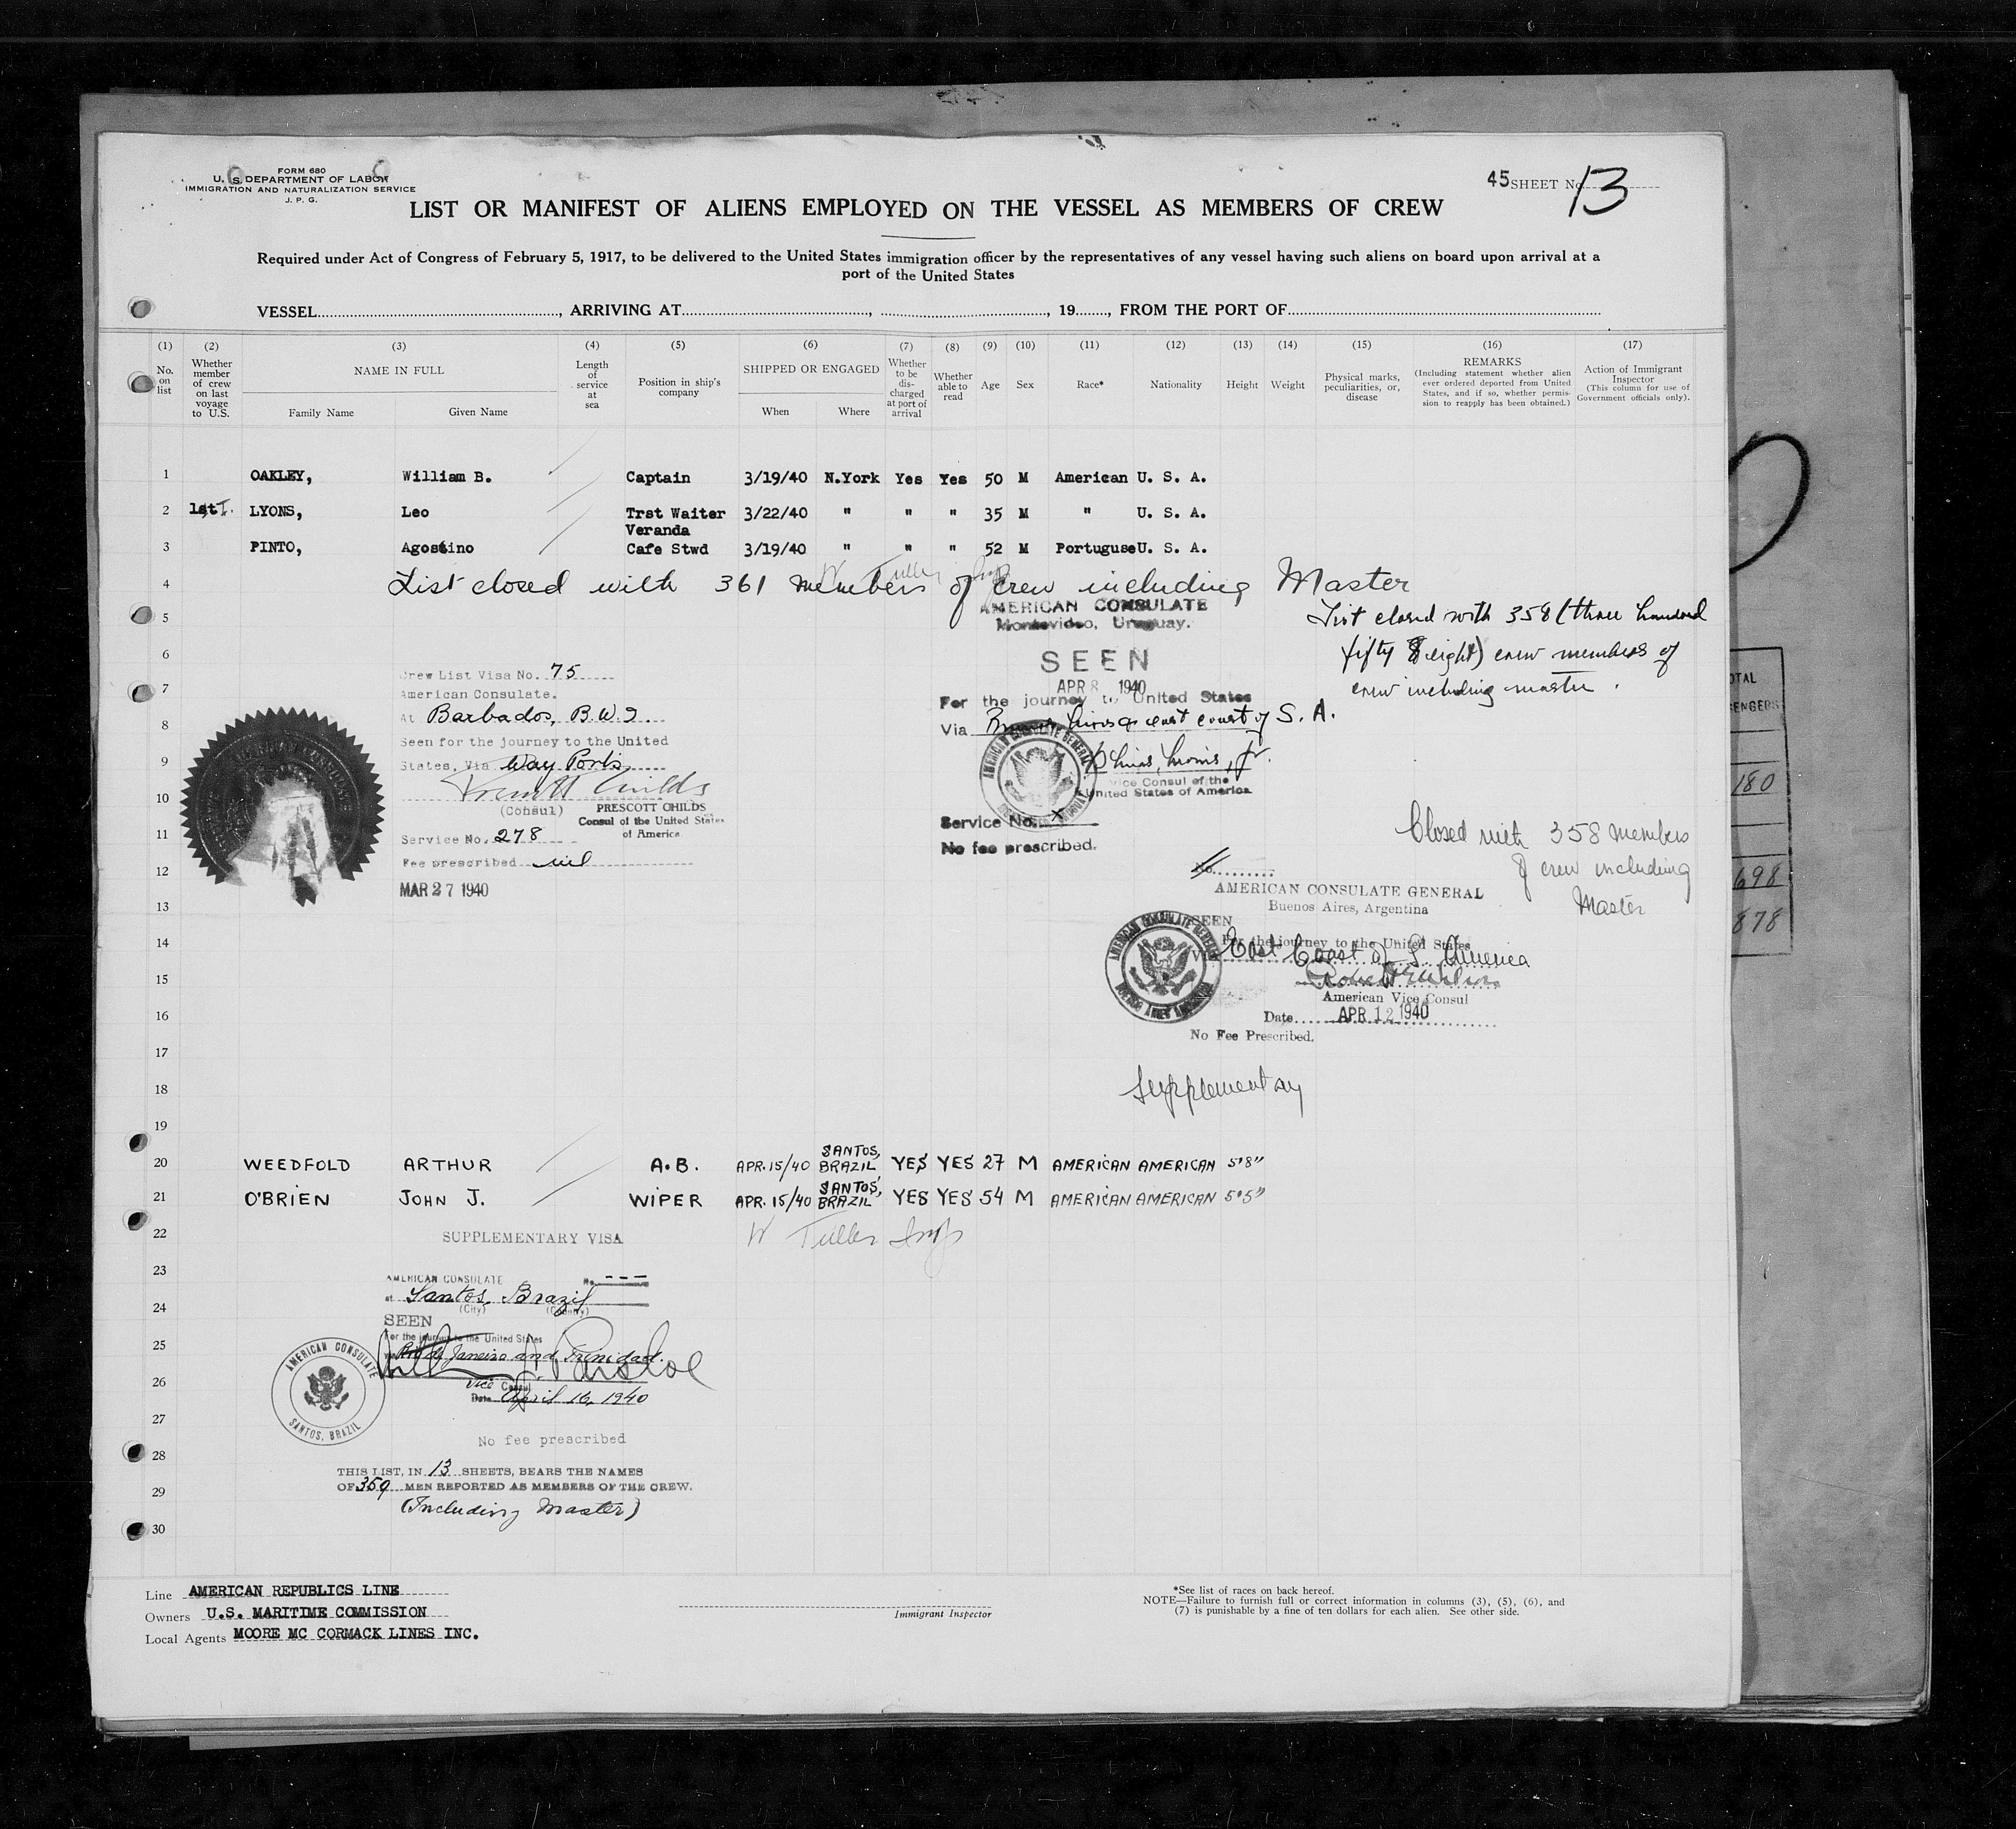 FORM 680
U. S. DEPARTMENT OF LABOR
IMMIGRATION AND NATURALIZATION SERVICE
J. P. G.
45 SHEET No. 13
LIST OR MANIFEST OF ALIENS EMPLOYED ON THE VESSEL AS MEMBERS OF CREW
Required under Act of Congress of February 5, 1917, to be delivered to the United States immigration officer by the representatives of any vessel having such aliens on board upon arrival at a
port of the United States
VESSEL, ARRIVING AT, , 19, FROM THE PORT OF
(1) No. on list
(2) Whether member of crew on last voyage to U.S.
(3) NAME IN FULL Family Name Given Name
(4) Length of service at sea
(5) Position in ship's company
(6) SHIPPED OR ENGAGED When Where
(7) Whether to be discharged at port of arrival
(8) Whether able to read
(9) Age
(10) Sex
(11) Race*
(12) Nationality
(13) Height
(14) Weight
(15) Physical marks, peculiarities, or, disease
(16) REMARKS (Including statement whether alien ever ordered deported from United States, and if so, whether permission to reapply has been obtained.)
(17) Action of Immigrant Inspector (This column for use of Government officials only).
1 OAKLEY, William B. Captain 3/19/40 N.York Yes Yes 50 M American U. S. A.
2 1st LYONS, Leo Trst Waiter 3/22/40 " " " 35 M " U. S. A.
Veranda
3 PINTO, Agostino Cafe Stwd 3/19/40 " " " 52 M Portuguse U. S. A.
W Tuller Insp
4 List closed with 361 members of crew including Master
5
6
7
8
9
10
11
12
13
14
15
16
17
18
19
List closed with 358 (three hundred
fifty eight) crew members of
crew including master.
Crew List Visa No. 75
American Consulate.
At Barbados, B.W.I.
Seen for the journey to the United
States, Via Way Ports
Prescott Childs
(Consul) PRESCOTT CHILDS
Consul of the United States
of America
Service No. 278
Fee prescribed nil
MAR 27 1940
AMERICAN CONSULATE
Montevideo, Uruguay.
SEEN
APR 8 1940
For the journey to United States
Via east coast of S. A.
AMERICAN CONSULATE GENERAL
Vice Consul of the
United States of America
Service No. X
No fee prescribed.
Closed with 358 members
of crew including
Master
No.
AMERICAN CONSULATE GENERAL
Buenos Aires, Argentina
SEEN
For the journey to the United States
Via East Coast of S. America
American Vice Consul
Date APR 12 1940
No Fee Prescribed.
AMERICAN CONSULATE GENERAL
BUENOS AIRES ARGENTINA
Supplementary
20 WEEDFOLD ARTHUR A.B. APR.15/40 SANTOS, BRAZIL YES YES 27 M AMERICAN AMERICAN 5'8"
21 O'BRIEN JOHN J. WIPER APR. 15/40 SANTOS, BRAZIL YES YES 54 M AMERICAN AMERICAN 5'5"
22
23
24
25
26
27
28
29
30
W Tuller Insp
SUPPLEMENTARY VISA
AMERICAN CONSULATE No. ---
at Santos, Brazil
(City) (Country)
SEEN
For the journey to the United States
via Rio de Janeiro and Trinidad.
Vice Consul
Date April 16, 1940
AMERICAN CONSULATE
SANTOS, BRAZIL
No fee prescribed
THIS LIST, IN 13 SHEETS, BEARS THE NAMES
OF 359 MEN REPORTED AS MEMBERS OF THE CREW.
(Including Master)
Line AMERICAN REPUBLICS LINE
Owners U.S. MARITIME COMMISSION
Local Agents MOORE MC CORMACK LINES INC.
Immigrant Inspector
*See list of races on back hereof.
NOTE—Failure to furnish full or correct information in columns (3), (5), (6), and
(7) is punishable by a fine of ten dollars for each alien. See other side.
180
698
878